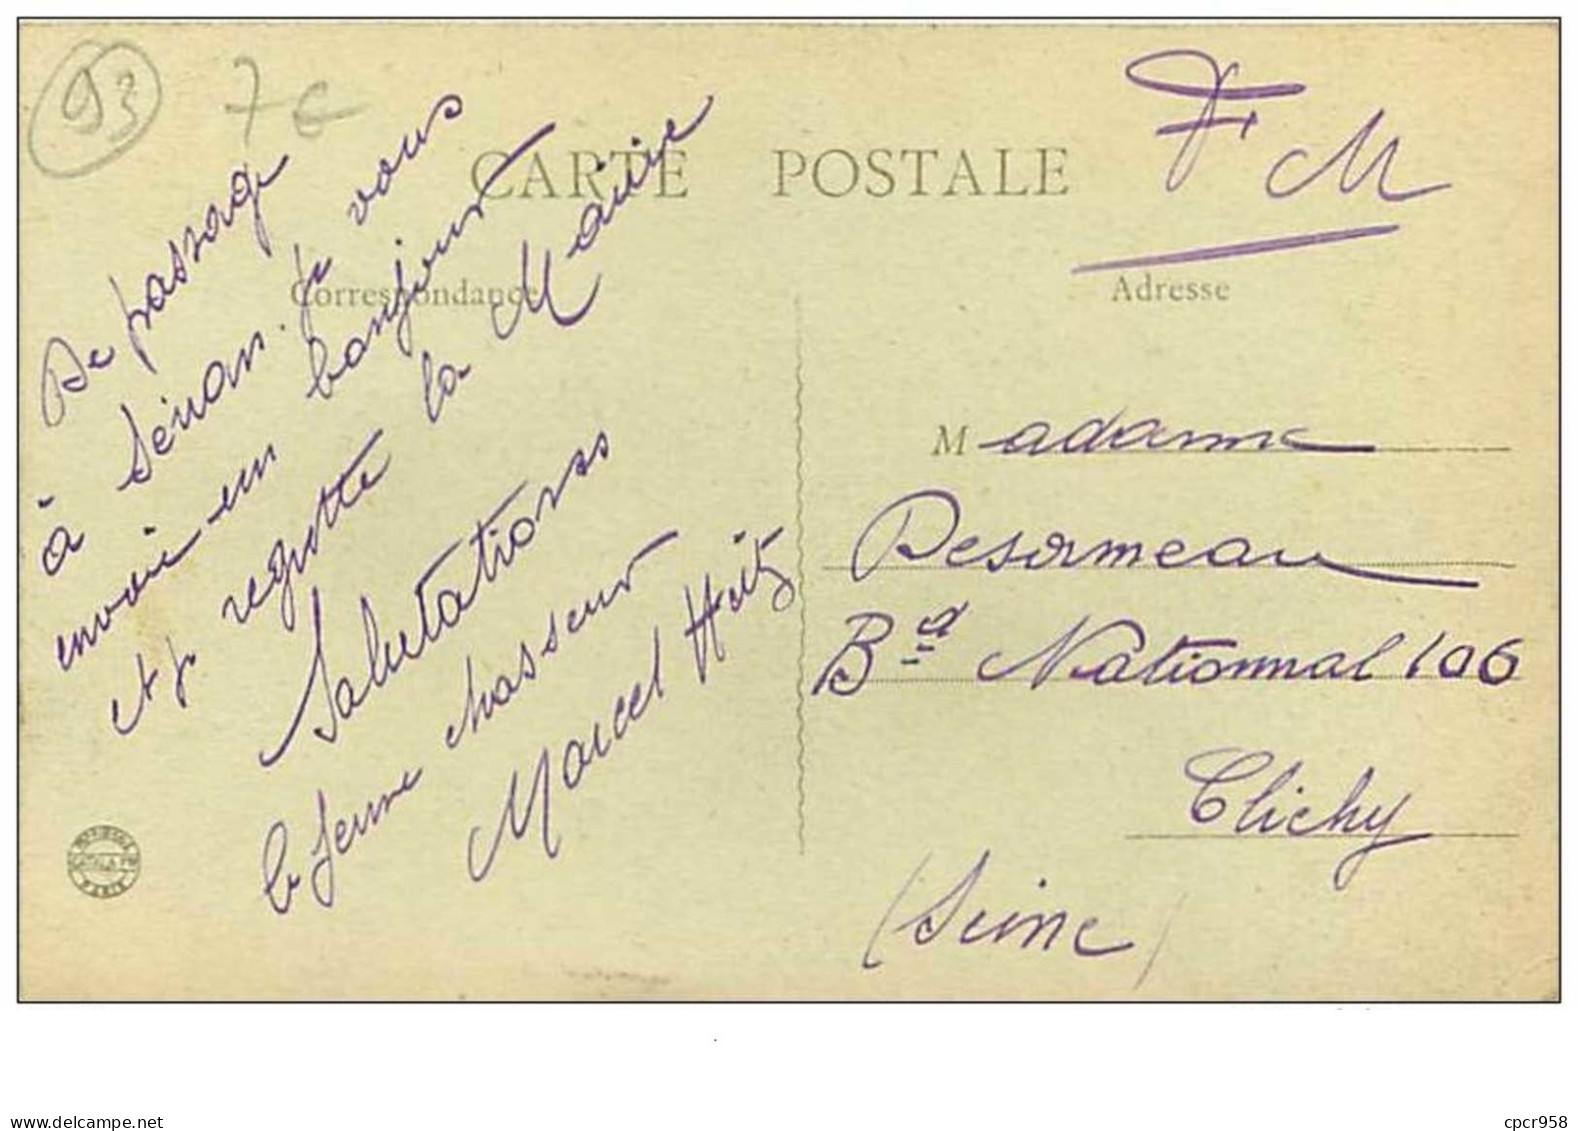 93
7 €
CARTE POSTALE
F M
Correspondance
Adresse
De passage
à Sénan. je vous
envoie un bonjour
et je regrette la Mairie
Salutations
le jeune chasseur
Marcel
Madame
Desormeau
Bd Nationnal 106
Clichy
(Seine)
PARIS
delcampe.net
cpcr958